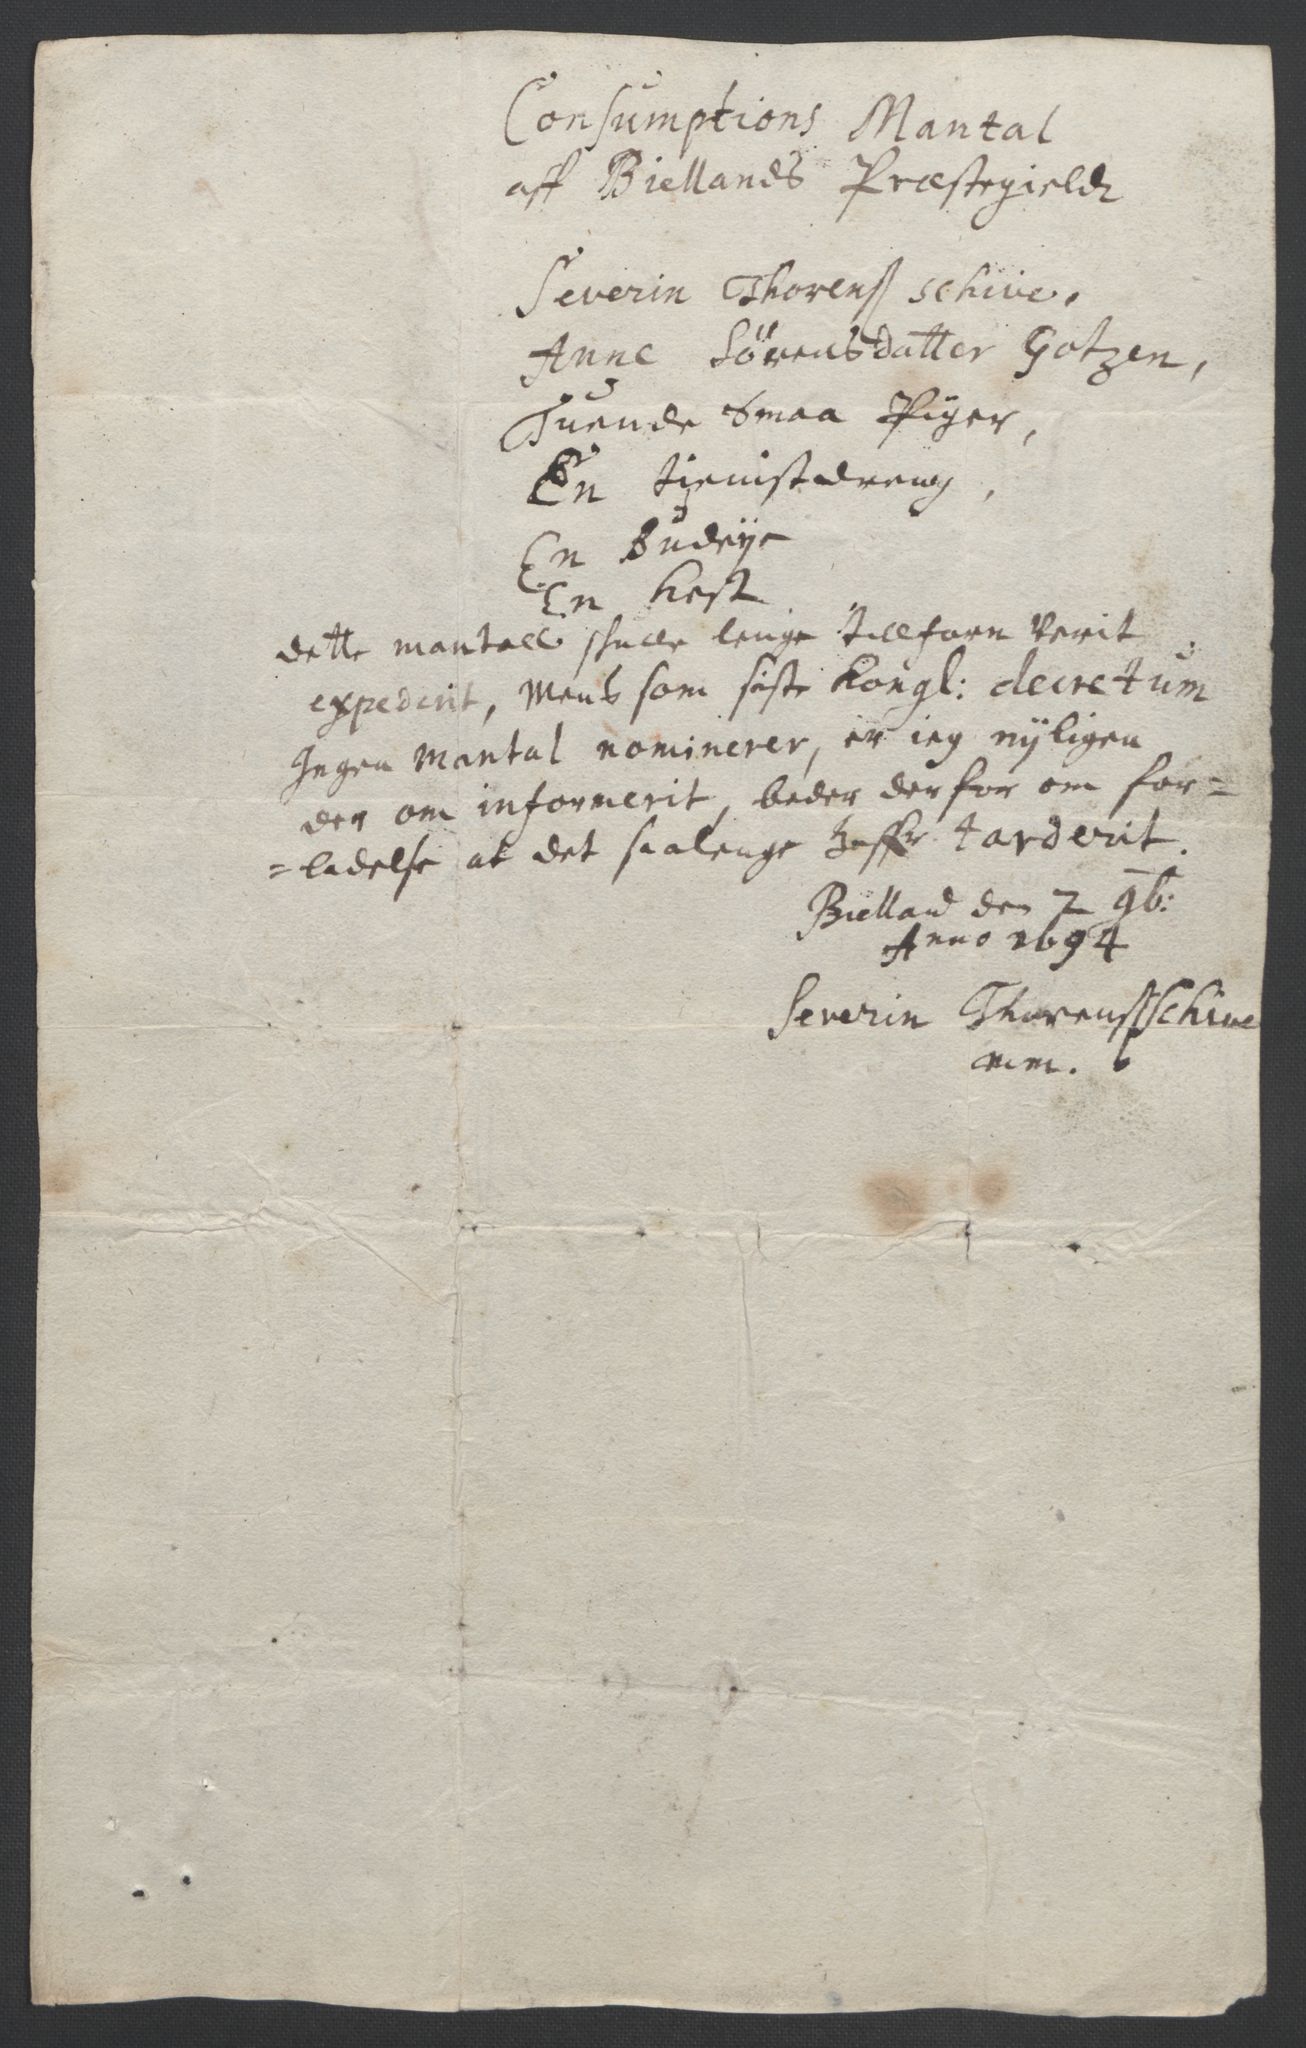 Consumptions Mantal
aff Biellands Præstegieldt
Severin Thorenß Schive.
Anne Sörensdatter Gotzen,
Tuende Smaa Piger,
En tienistdreng,
En Budeije
En Hest
dette mantall skulle lenge tillforn verit
expederit, Mens som siste Kongl: decretum
Ingen Mantal nominerer, er ieg nÿligen
der om informerit, beder derfor om for=
=ladelse at det saalenge haffr tarderit.
Bielland den 7 9b:
Anno 1694
Severin Thorenß Schive
mm.